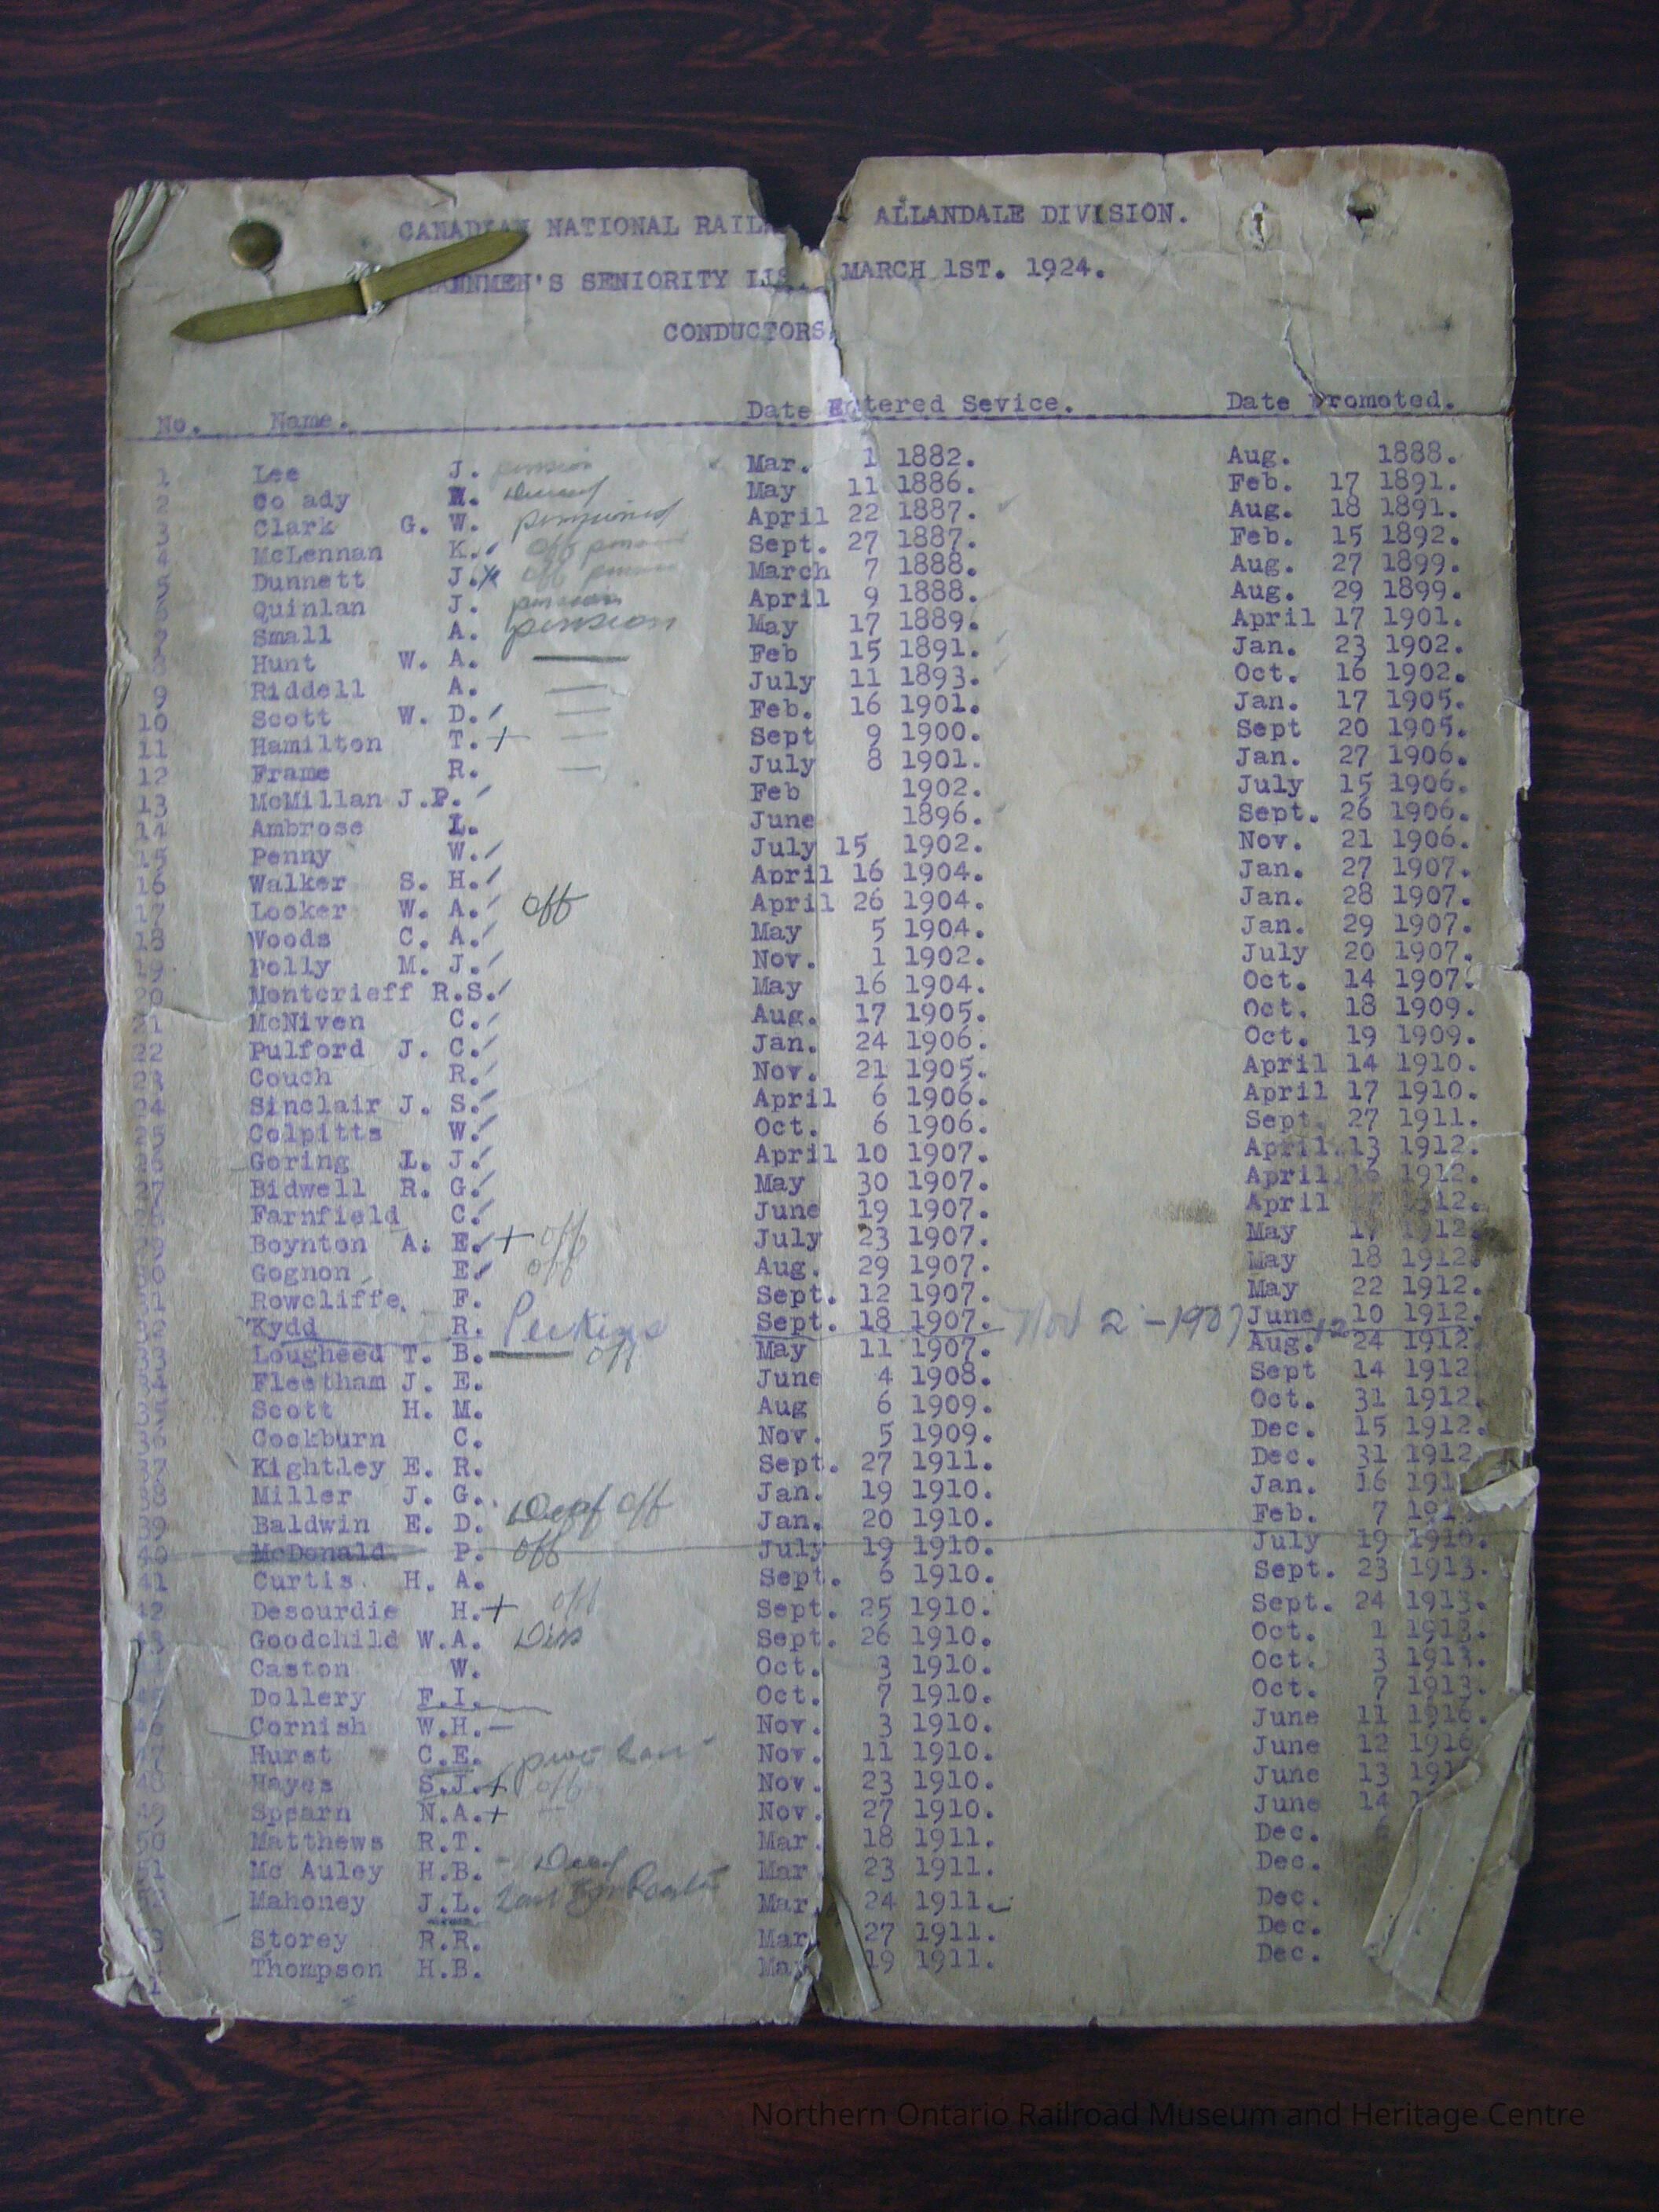 CANADIAN NATIONAL RAIL ALLANDALE DIVISION.
NMEN'S SENIORITY LIS MARCH 1ST. 1924.
CONDUCTORS
No. Name. Date Entered Sevice. Date Promoted.
1 Lee J. pension Mar. 1 1882. Aug. 1888.
2 Co ady May 11 1886. Feb. 17 1891.
3 Clark G. W. pensioned April 22 1887. Aug. 18 1891.
4 McLennan K. off pension Sept. 27 1887. Feb. 15 1892.
5 Dunnett J. off pension March 7 1888. Aug. 27 1899.
6 Quinlan J. pension April 9 1888. Aug. 29 1899.
7 Small A. pension May 17 1889. April 17 1901.
8 Hunt W. A. Feb 15 1891. Jan. 23 1902.
9 Riddell A. July 11 1893. Oct. 16 1902.
10 Scott W. D. Feb. 16 1901. Jan. 17 1905.
11 Hamilton T. + Sept 9 1900. Sept 20 1905.
12 Frame R. July 8 1901. Jan. 27 1906.
13 McMillan J.P. Feb 1902. July 15 1906.
14 Ambrose L. June 1896. Sept. 26 1906.
15 Penny W. July 15 1902. Nov. 21 1906.
16 Walker S. H. April 16 1904. Jan. 27 1907.
17 Looker W. A. off April 26 1904. Jan. 28 1907.
18 Woods C. A. May 5 1904. Jan. 29 1907.
19 Polly M. J. Nov. 1 1902. July 20 1907.
20 Montcrieff R.S. May 16 1904. Oct. 14 1907.
21 McNiven C. Aug. 17 1905. Oct. 18 1909.
22 Pulford J. C. Jan. 24 1906. Oct. 19 1909.
23 Couch R. Nov. 21 1905. April 14 1910.
24 Sinclair J. S. April 6 1906. April 17 1910.
25 Colpitts W. Oct. 6 1906. Sept. 27 1911.
26 Goring L. J. April 10 1907. April 13 1912.
27 Bidwell R. G. May 30 1907. April 16 1912.
28 Farnfield C. June 19 1907. April 1912.
29 Boynton A. E. + off July 23 1907. May 17 1912.
30 Gognon E. off Aug. 29 1907. May 18 1912.
31 Rowcliffe F. Sept. 12 1907. May 22 1912.
32 Kydd R. Perkins Sept. 18 1907. Nov 2 - 1907 June 10 1912.
33 Lougheed T. B. off May 11 1907. Aug. 24 1912.
34 Fleetham J. E. June 4 1908. Sept 14 1912.
35 Scott H. M. Aug 6 1909. Oct. 31 1912.
36 Cockburn C. Nov. 5 1909. Dec. 15 1912.
37 Kightley E. R. Sept. 27 1911. Dec. 31 1912.
38 Miller J. G. Jan. 19 1910. Jan. 16 191
39 Baldwin E. D. Deaf off Jan. 20 1910. Feb. 7 191
40 McDonald P. off July 19 1910. July 19 1910.
41 Curtis. H. A. Sept. 6 1910. Sept. 23 1913.
42 Desourdie H. + off Sept. 25 1910. Sept. 24 1913.
43 Goodchild W.A. Diss Sept. 26 1910. Oct. 1 1913.
Caston W. Oct. 3 1910. Oct. 3 1913.
45 Dollery F.I. Oct. 7 1910. Oct. 7 1913.
46 Cornish W.H. Nov. 3 1910. June 11 1916.
47 Hurst C.E. Nov. 11 1910. June 12 1916
48 Hayes S.J. + off Nov. 23 1910. June 13 191
49 Spearn N.A. + Nov. 27 1910. June 14 1
50 Matthews R.T. Mar. 18 1911. Dec.
51 Mc Auley H.B. Mar 23 1911. Dec.
52 Mahoney J.L. Mar 24 1911. Dec.
3 Storey R.R. Mar 27 1911. Dec.
Thompson H.B. May 19 1911. Dec.
Northern Ontario Railroad Museum and Heritage Centre